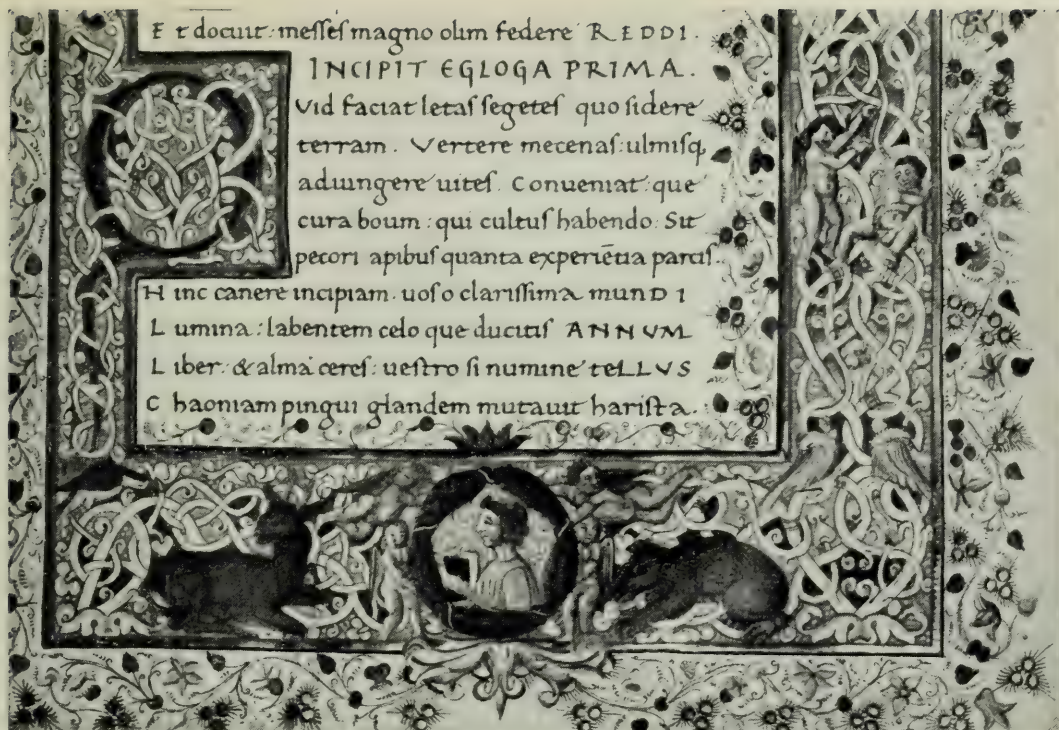 E t docuit: meſſeſ magno olim federe REDDI.
INCIPIT EGLOGA PRIMA.
QVid faciat letaſ ſegeteſ quo ſidere
terram. Vertere mecenaſ: ulmiſq
adiungere uiteſ. Conueniat: que
cura boum: qui cultuſ habendo: Sit
pecori apibuſ quanta experiētia parciſ.
H inc canere incipiam. uoſ o clariſſima munDI
L umina: labentem celo que ducitiſ ANNUM
L iber: & alma cereſ: ueſtro ſi numine teLLVS
C haoniam pingui glandem mutauit hariſta.